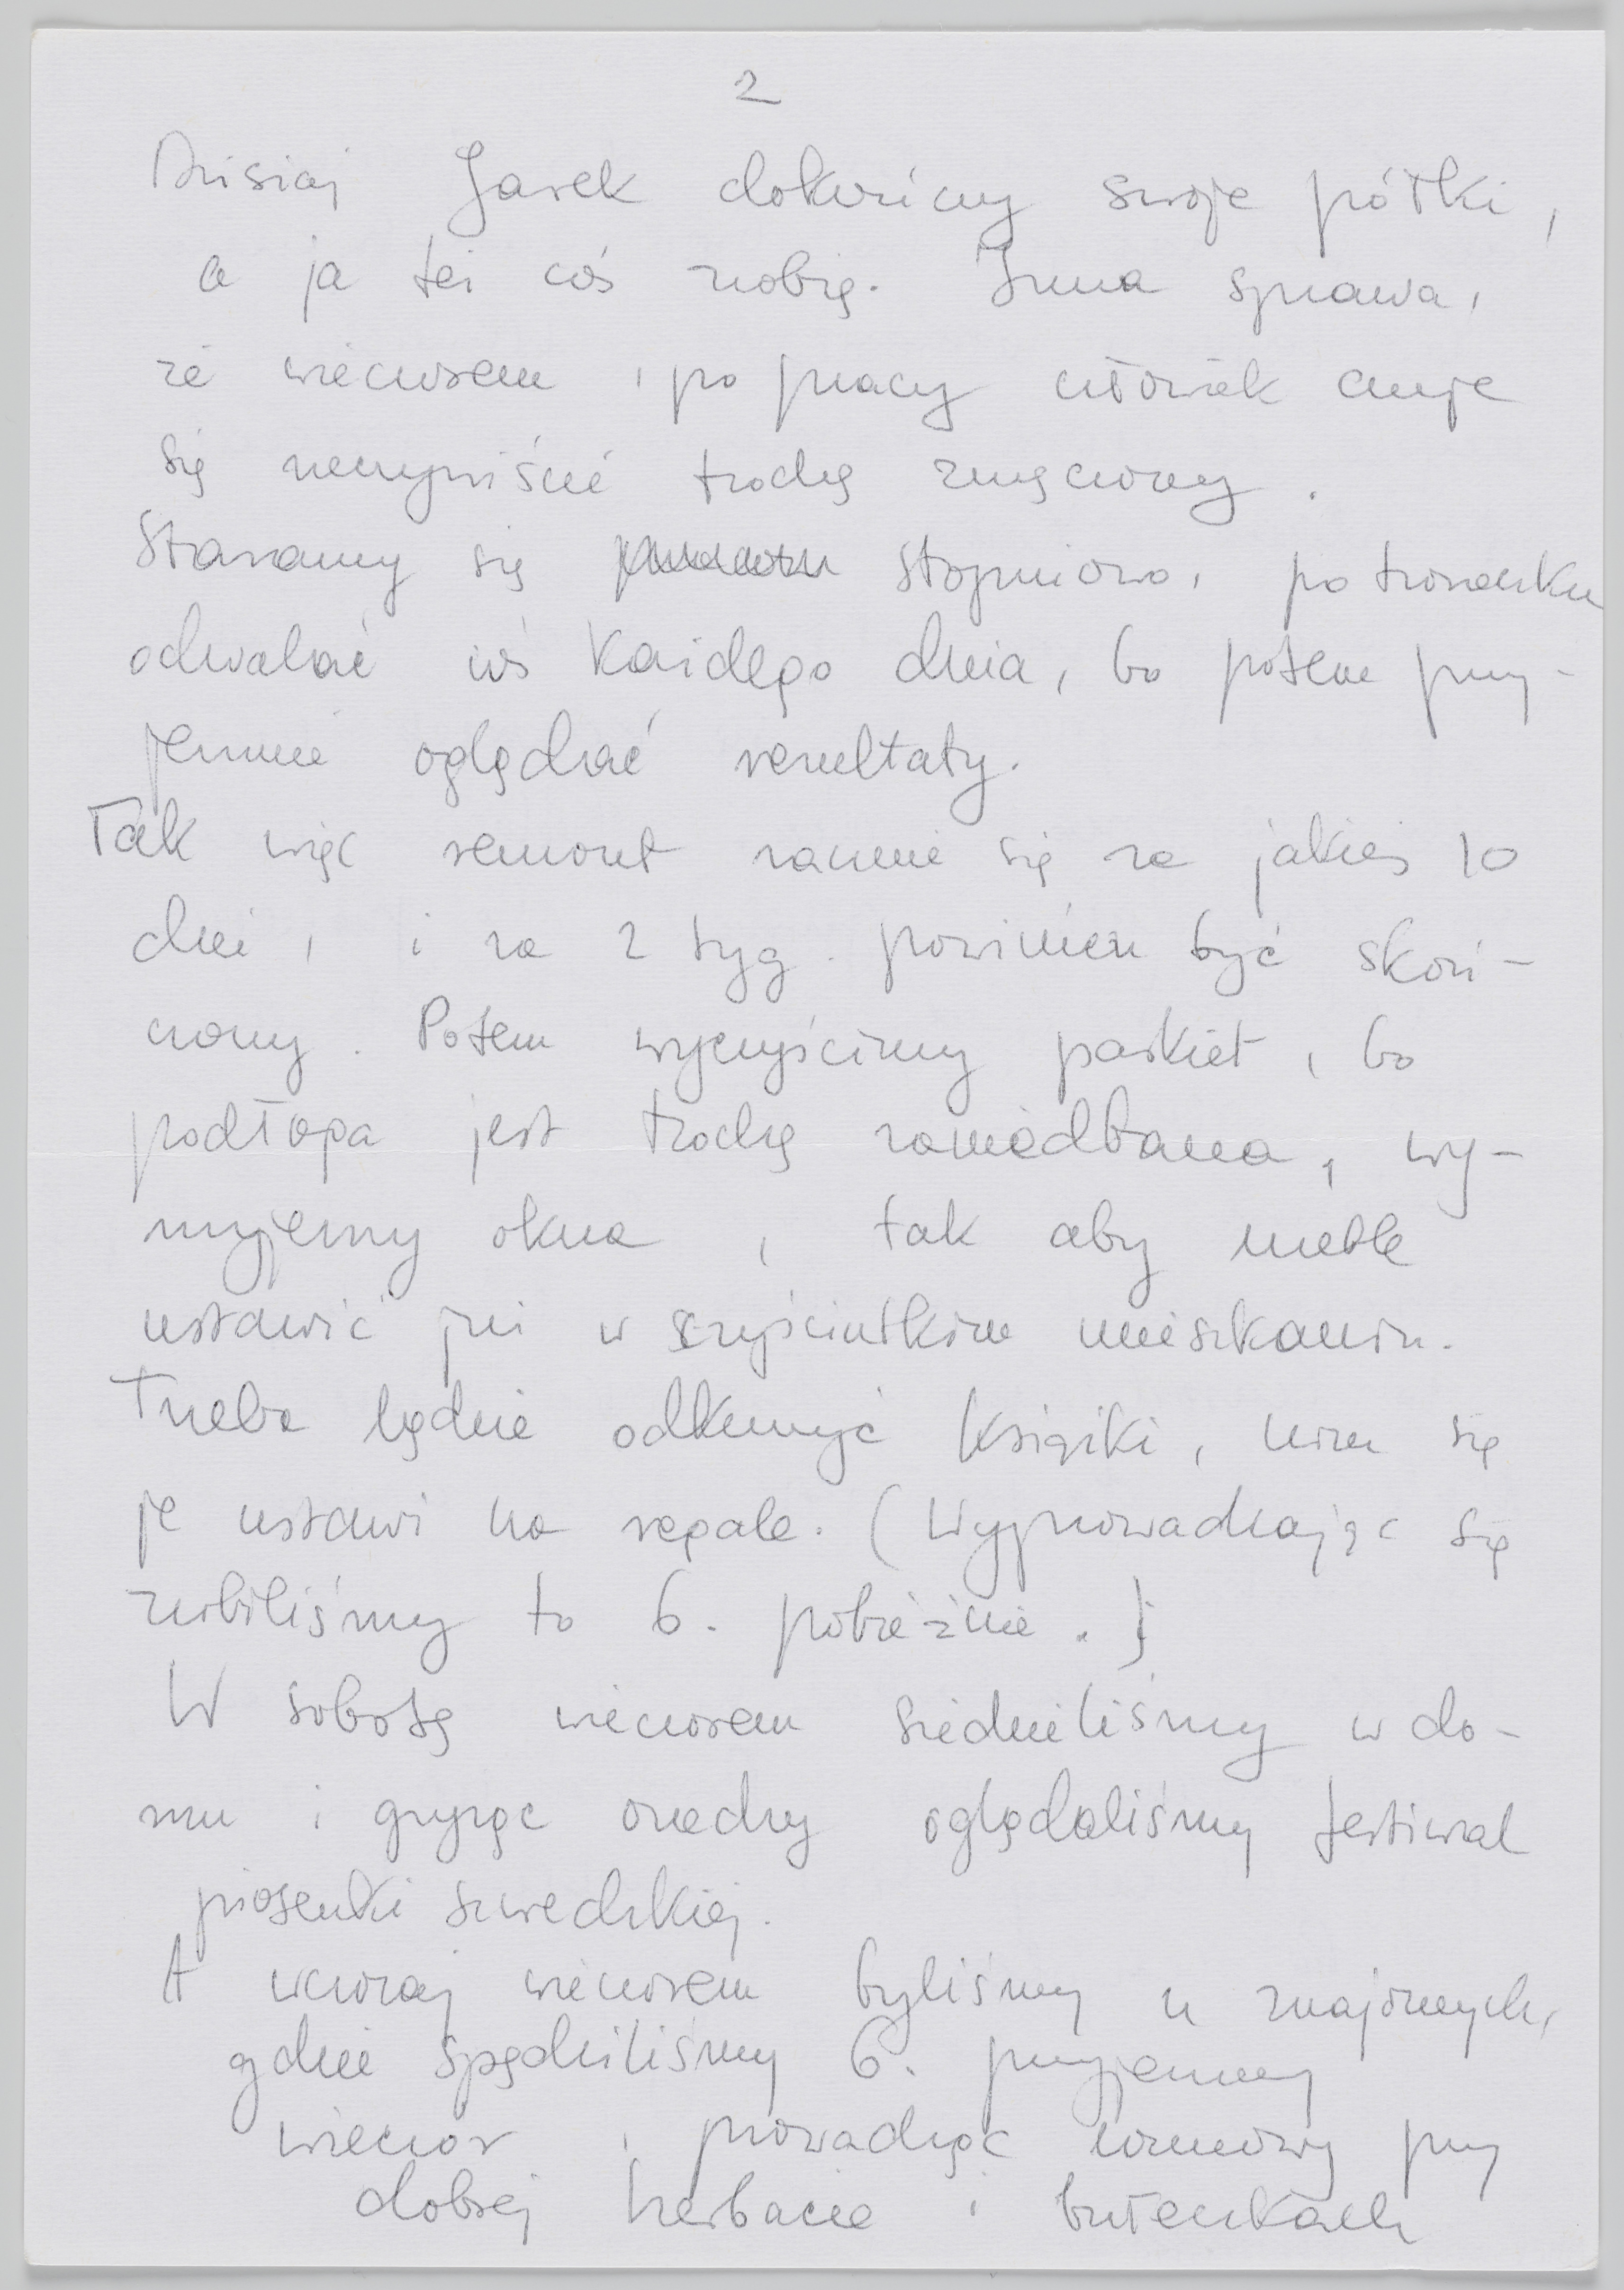 2
Dzisiaj Jarek dokończy swoje półki,
a ja też coś zrobię. Inna sprawa,
że wieczorem, po pracy człowiek czuje
się oczywiście trochę zmęczony.
Staramy się stopniowo, po troszeczku
odwalać coś każdego dnia, bo potem przy-
jemnie oglądać rezultaty.
Tak więc remont zacznie się za jakieś 10
dni, i za 2 tyg. powinien być skoń-
czony. Potem wyczyścimy parkiet, bo
podłoga jest trochę zaniedbana, wy-
myjemy okna, tak aby meble
ustawić już w czyściutkim mieszkaniu.
Trzeba będzie odkurzyć książki, nim się
je ustawi na regale. (Wyprowadzając się
zrobiliśmy to b. pobieżnie.)
W sobotę wieczorem siedzieliśmy w do-
mu i gryząc orzechy oglądaliśmy festiwal
piosenki szwedzkiej.
A wczoraj wieczorem byliśmy u znajomych,
gdzie spędziliśmy b. przyjemny
wieczór, prowadząc rozmowy przy
dobrej herbacie i bułeczkach